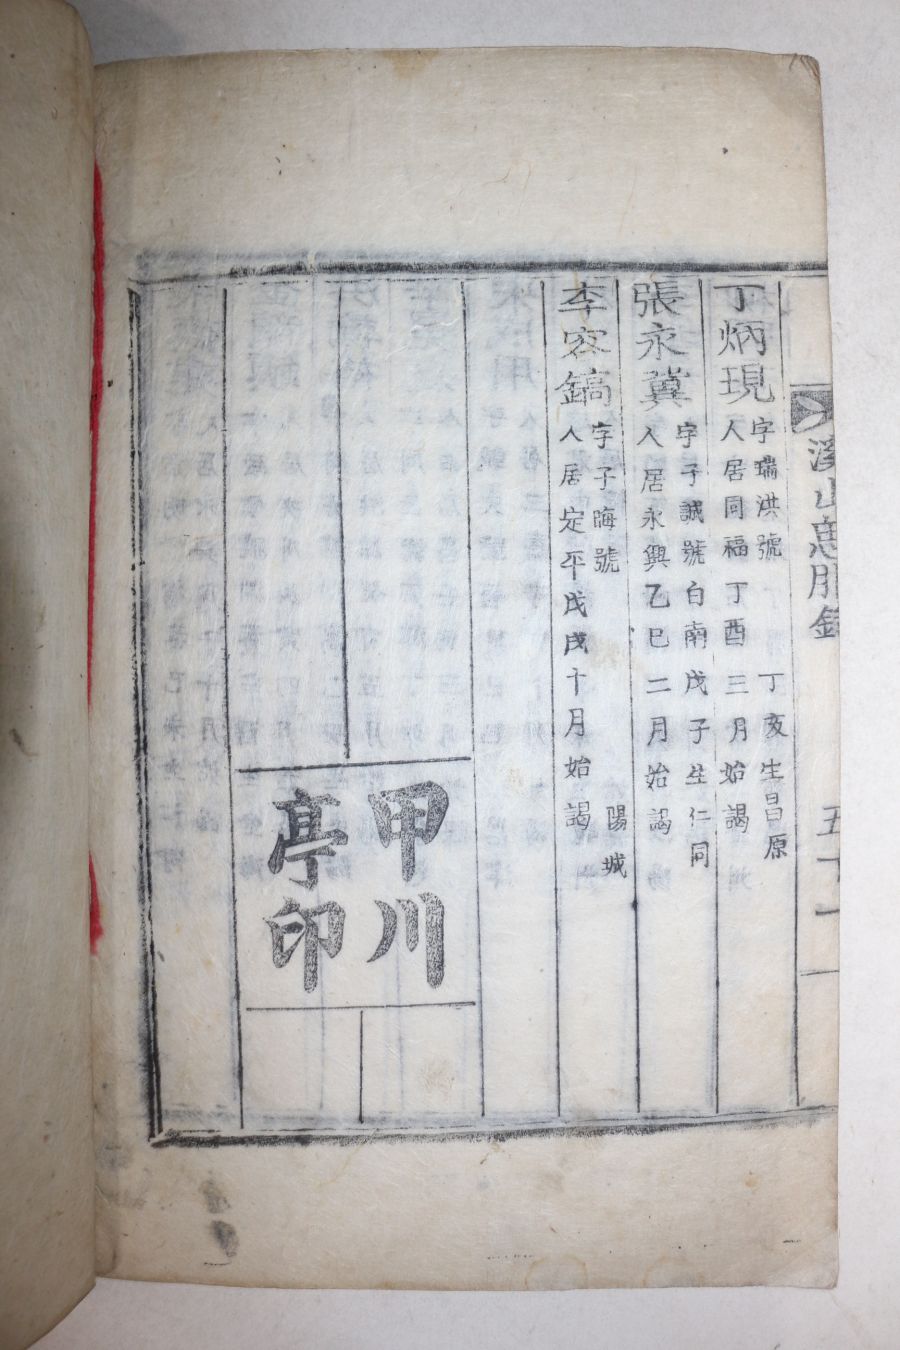 溪山
五十一
丁炳現 字瑞洪號 丁亥生昌原
人居同福丁酉三月始謁
張永冀 字子誠號白南戊子生仁同
人居永興乙巳二月始謁
李容鎬 字子晦號 陽城
人居定平戊戌十月始謁
甲川
亭印